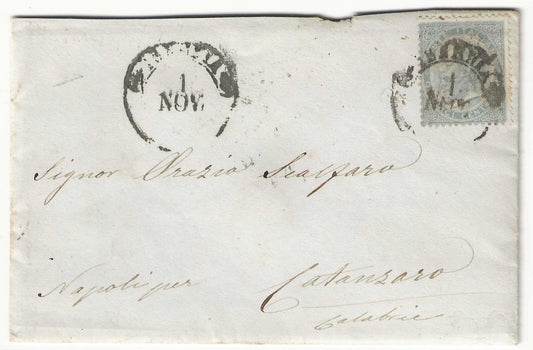 1
NOV.
1
NOV.
Signor Orazio Scalfaro
Napoli per Catanzaro
Calabrie